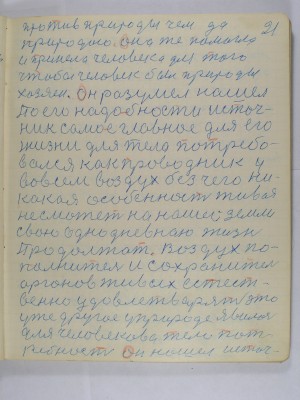 против природы чем да 21
природою. Она же помогла
и привела человека для того
чтобы человек был природы
хозяин. Он разумел нашел
по его надобности источ-
ник самое главное для его
жизни для тела потребо-
вался как проводник у
во всем воздух без чего ни-
какая особенност живая
не сможет на нашей земли
свою однодневнаю жизн
продолжат. Воздух по-
полнител и сохранител
органов живых естест-
венно удовлетварят это
уже другое у природе явилос
для человекова тела пот-
ребност Он нашел источ-